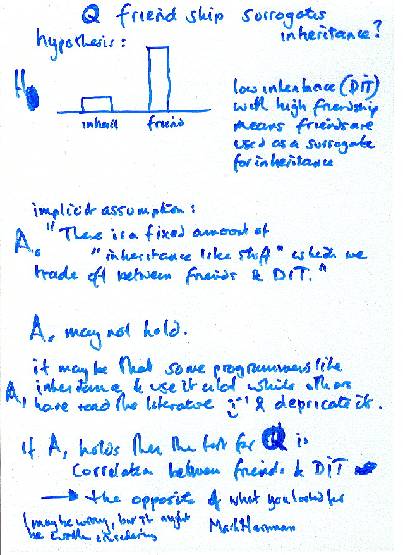 Q friendship surrogates
inheritance?
hypothesis:
H₀
inherit friend
low inheritance (DIT)
with high friendship
means friends are
used as a surrogate
for inheritance
implicit assumption:
A₀ "There is a fixed amount of
"inheritance like stuff" which we
trade off between friends & DIT."
A₀ may not hold.
it may be that some programmers like
A₁ inheritance & use it a lot while others
have read the literature & depricate it.
if A₁ holds then the test for Q is
Correlation between friends & DIT
→ the opposite of what you looked for
I may be wrong, but it might
be worth considering
Mark Harman